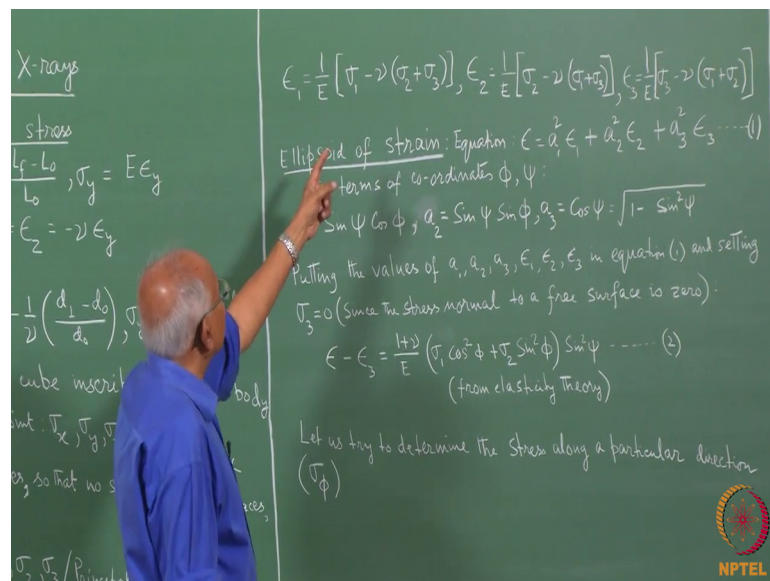 X-rays
stress
L_f - L_0 / L_0 , σ_y = E ε_y
= ε_2 = -ν ε_y
- 1/ν ( d_1 - d_0 / d_0 ), σ
cube inscrib body
oint: σ_x, σ_y, σ
es, so that no s aces,
σ_2, σ_3 / Princip
ε_1 = 1/E [σ_1 - ν (σ_2 + σ_3)], ε_2 = 1/E [σ_2 - ν (σ_1 + σ_3)], ε_3 = 1/E [σ_3 - ν (σ_1 + σ_2)]
Ellipsoid of strain: Equation: ε = a_1^2 ε_1 + a_2^2 ε_2 + a_3^2 ε_3 ----- (1)
terms of co-ordinates φ, ψ:
Sin ψ Cos φ, a_2 = Sin ψ Sin φ, a_3 = Cos ψ = √(1 - Sin^2 ψ)
Putting the values of a_1, a_2, a_3, ε_1, ε_2, ε_3 in equation (1) and setting
σ_3 = 0 (Since the stress normal to a free surface is zero):
ε - ε_3 = 1+ν / E (σ_1 cos^2 φ + σ_2 Sin^2 φ) Sin^2 ψ ------ (2)
(from elasticity Theory)
Let us try to determine the Stress along a particular direction
(σ_φ)
NPTEL